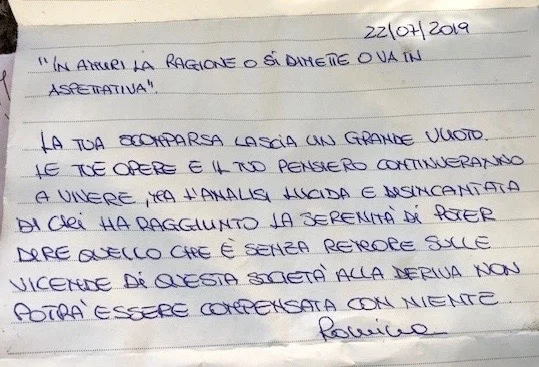 22/07/2019
"IN AMURI LA RAGIONE O SI DIMETTE O VA IN
ASPETTATIVA".
LA TUA SCOMPARSA LASCIA UN GRANDE VUOTO.
LE TUE OPERE E IL TUO PENSIERO CONTINUERANNO
A VIVERE, MA L'ANALISI LUCIDA E DISINCANTATA
DI CHI HA RAGGIUNTO LA SERENITÀ DI POTER
DIRE QUELLO CHE È SENZA REMORE SULLE
VICENDE DI QUESTA SOCIETÀ ALLA DERIVA NON
POTRÀ ESSERE COMPENSATA CON NIENTE.
Romina